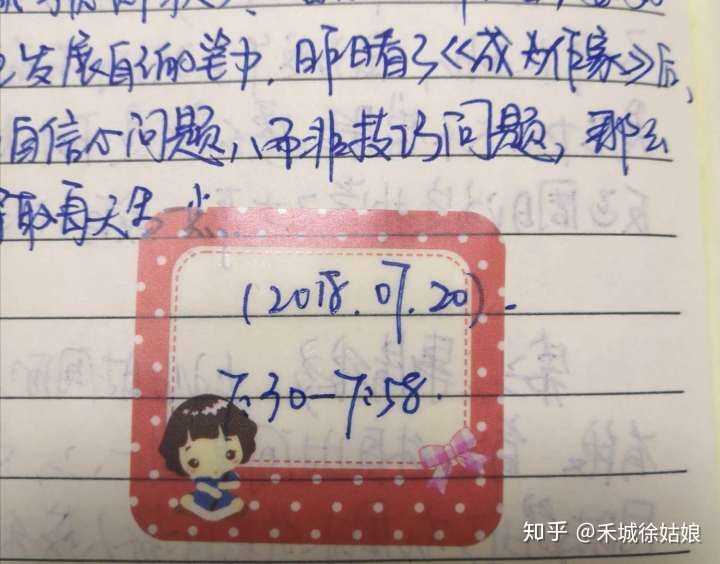 发展自己的笔力,昨日看了《成为作家》后,
自信心问题,而非技巧问题,那么
取每天写一点
(2018.07.20).
7:30—7:58.
知乎 @禾城徐姑娘